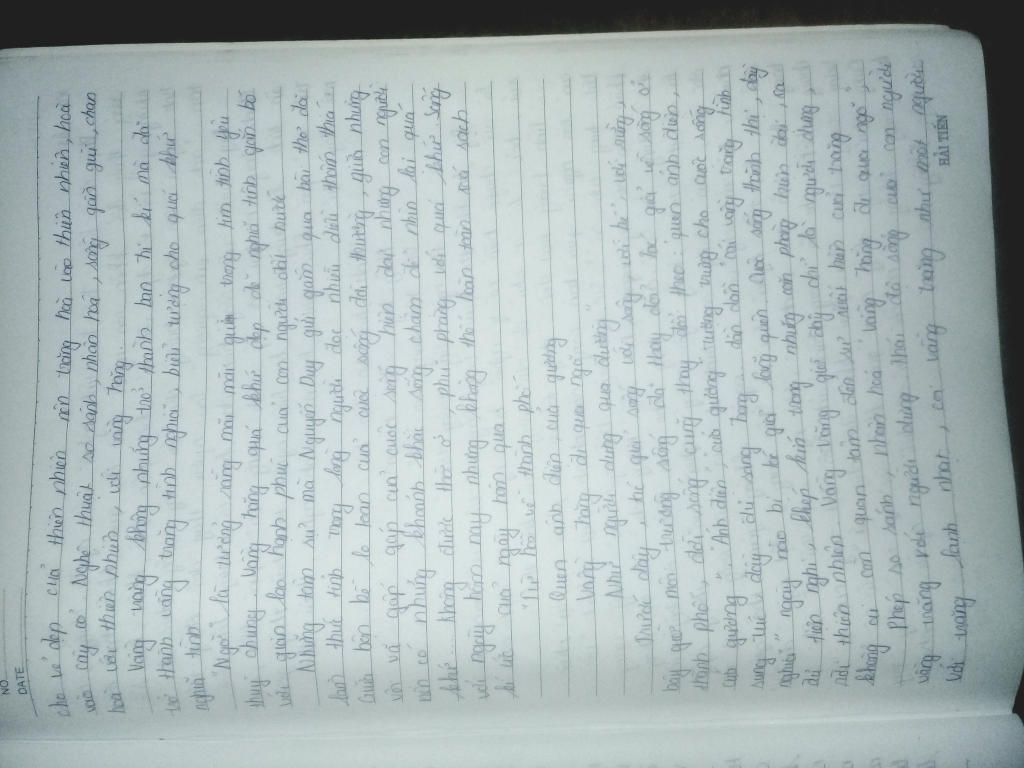 NO.
DATE
cho vẻ đẹp của thiên nhiên nên trăng hoà vào thiên nhiên, hoà
vào cây cỏ. Nghệ thuật so sánh nhân hoá, sống gần gũi, chan
hoà với thiên nhiên, với vầng trăng
Vầng trăng không những thở thành bạn tri kỉ mà đã
trở thành vầng trăng tình nghĩa, biểu tượng cho quá khứ
nghĩa tình.
"Ngỡ" là tưởng rằng mãi mãi trong tim tình yêu
thuỷ chung. Vầng trăng quá khứ đẹp đẽ nghĩa tình gắn bó
với gian lao hạnh phúc của con người đất nước
Những tâm sự mà Nguyễn Duy gửi gắm qua bài thơ đã
đánh thức tình trong lòng người đọc nhiều điều thấm thía
Giữa bộn bề lo toan của cuộc sống đời thường, giữa những
vồn vã gấp gáp của cuộc sống hiện đại những con người
nên có những khoảnh khắc sống chậm để nhìn lại quá
khứ. không được thờ ơ phũ phàng với quá khứ sống
với ngày hôm nay nhưng không thể hoàn toàn xoá sạch
kí ức của ngày hôm qua
"Từ hồi về thành phố
Quen ánh điện, cửa gương
Vầng trăng đi qua ngõ
Như người dưng qua đường"
Trước đây, tác giả sống "với sông với bể", với rừng,
bây giờ môi trường sống đã thay đổi tác giả về sống ở
thành phố, đời sống cũng thay đổi theo: quen ánh điện,
cửa gương". Ánh điện, cửa gương tượng trưng cho cuộc sống
sung túc đầy đủ sang trọng dần dần cái vầng trăng tình
nghĩa" ngày nào bị tác giả lãng quên. Cuộc sống thành thị, đầy
đủ tiện nghi, khép kín trong những căn phòng hiện đại, xa
rời thiên nhiên. Vầng trăng giờ đây chỉ là người dưng,
không ai còn quan tâm đến sự xuất hiện của trăng
Phép so sánh, nhân hoá "vầng trăng đi qua ngõ",
vầng trăng với người dưng thấy đời sống của con người
Với trăng lạnh nhạt, coi vầng trăng như một người
HẢI TIẾN